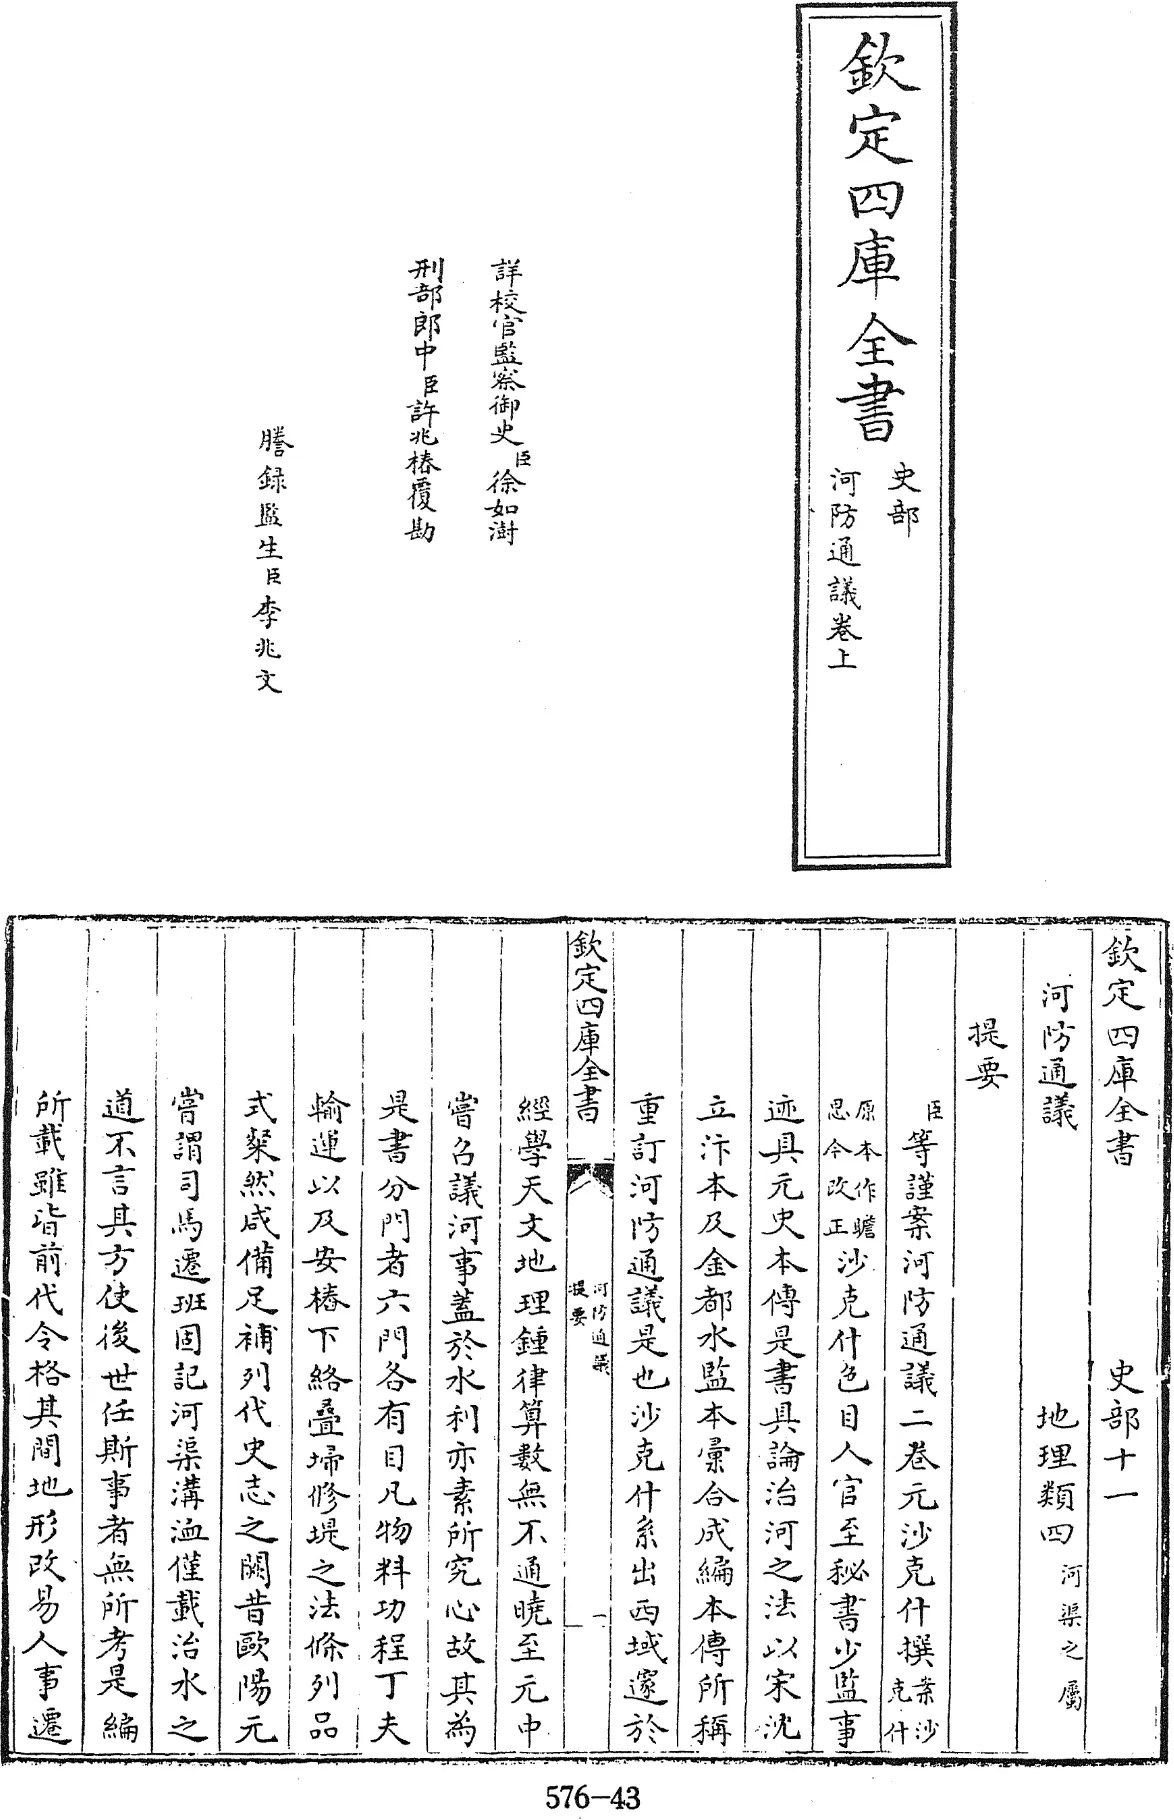 欽定四庫全書
史部
河防通議卷上
詳校官監察御史臣徐如澍
刑部郎中臣許兆椿覆勘
謄録監生臣李兆文
欽定四庫全書 史部十一
河防通議 地理類四 河渠之屬
提要
臣等謹案河防通議二卷元沙克什撰案沙克什
原本作贍思今改正沙克什色目人官至秘書少監事
迹具元史本傳是書具論治河之法以宋沈
立汴本及金都水監本彙合成編本傳所稱
重訂河防通議是也沙克什系出西域邃於
欽定四庫全書
河防通議
提要
一
經學天文地理鍾律算數無不通曉至元中
嘗召議河事蓋於水利亦素所究心故其為
是書分門者六門各有目凡物料功程丁夫
輸運以及安樁下絡疊埽修堤之法條列品
式粲然咸備足補列代史志之闕昔歐陽元
嘗謂司馬遷班固記河渠溝洫僅載治水之
道不言其方使後世任斯事者無所考是編
所載雖皆前代令格其間地形改易人事遷
576-43